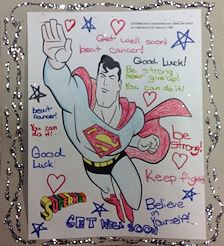 Get well soon!
beat cancer!
Good Luck!
Be strong
never give up!
You can do it!
beat
cancer!
You can
do it!
be
strong!
Good
Luck
Keep fighting
Superman
Believe
in
Yourself!
GET WELL SOON